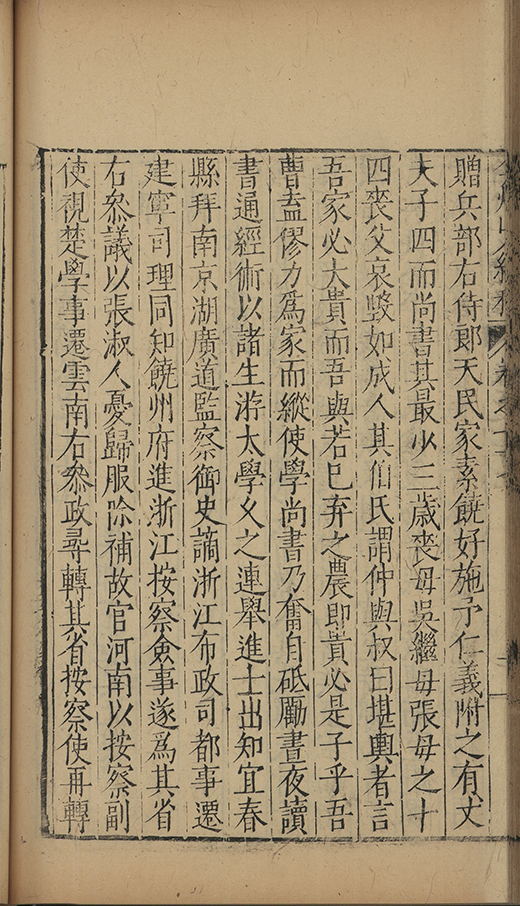 贈兵部右侍郎天民家素饒好施予仁義附之有丈
夫子四而尚書其最少三歲喪母吳繼母張母之十
四喪父哀毀如成人其伯氏謂仲與叔曰堪輿者言
吾家必大貴而吾與若巳弃之農即貴必是子乎吾
曹盍僇力爲家而縱使學尚書乃奮自砥勵晝夜讀
書通經術以諸生游太學乆之連舉進士出知宜春
縣拜南京湖廣道監察御史謫浙江布政司都事遷
建寧司理同知饒州府進浙江按察僉事遂爲其省
右叅議以張淑人憂歸服除補故官河南以按察副
使視楚學事遷雲南右叅政尋轉其省按察使再轉